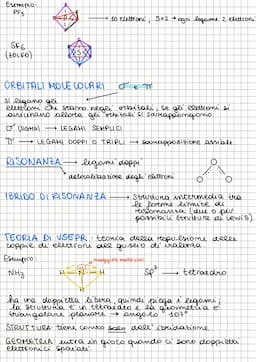 Esempio:
PF5 → 10 elettroni, 5×2 → ogni legame 2 elettroni
SF6
(ZOLFO)
S
ORBITALI MOLECOLARI σ e π
Si legano gli
elettroni che stanno negli orbitali, se gli elettroni si
avvicinano allora gli orbitali si sovrappongono.
σ (SIGMA) → LEGAMI SEMPLICI
π → LEGAMI DOPPI O TRIPLI → sovrapposizione assiale
RISONANZA → legami doppi
delocalizzazione degli elettroni
IBRIDO DI RISONANZA → struttura intermedia tra
le forme limite di
risonanza (due o più
possibili strutture di Lewis).
TEORIA DI VSEPR: teoria della repulsione delle
coppie di elettroni del guscio di valenza.
Esempio:
NH3 H N H sp3 → tetraedro
H
ha una doppietta libera, quindi piega i legami;
la struttura è un tetraedro e la geometria è
triangolare planare → angolo 107°
STRUTTURA: tiene conto solo dell'ibridazione
GEOMETRIA entra in gioco quando ci sono doppietti
elettronici spaiati.